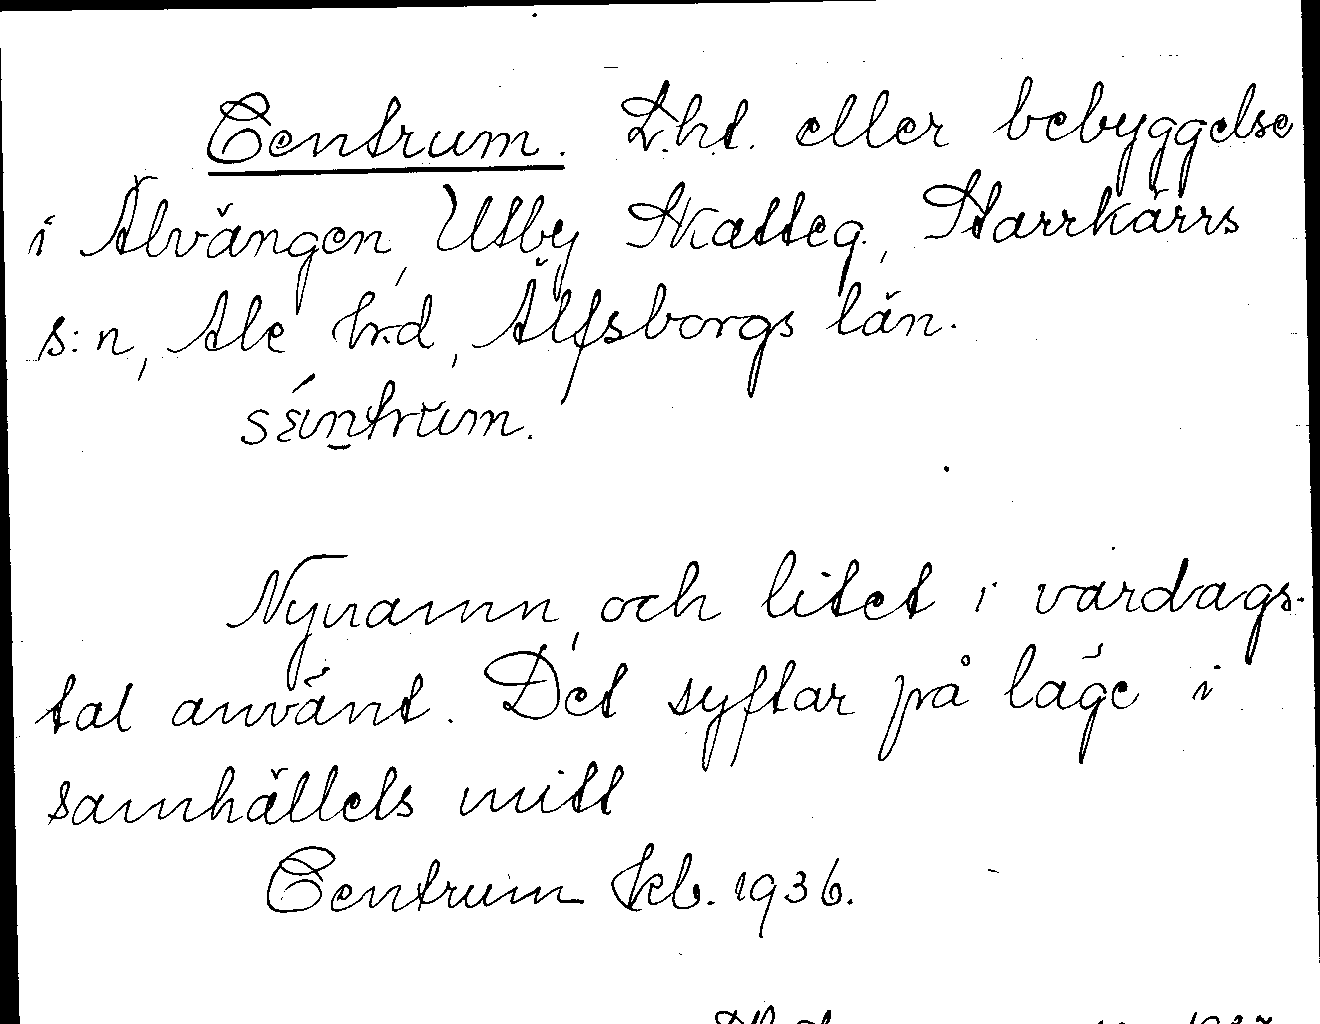 Centrum. Lht. eller bebyggelse
i Älvängen, Utby Skatteg., Starrkärrs
s:n, Ale hrd, Älfsborgs län.
Nynamn, och litet i vardags-
tal använt. Det syftar på läge i
samhällets mitt
Centrum Jkb. 1936.